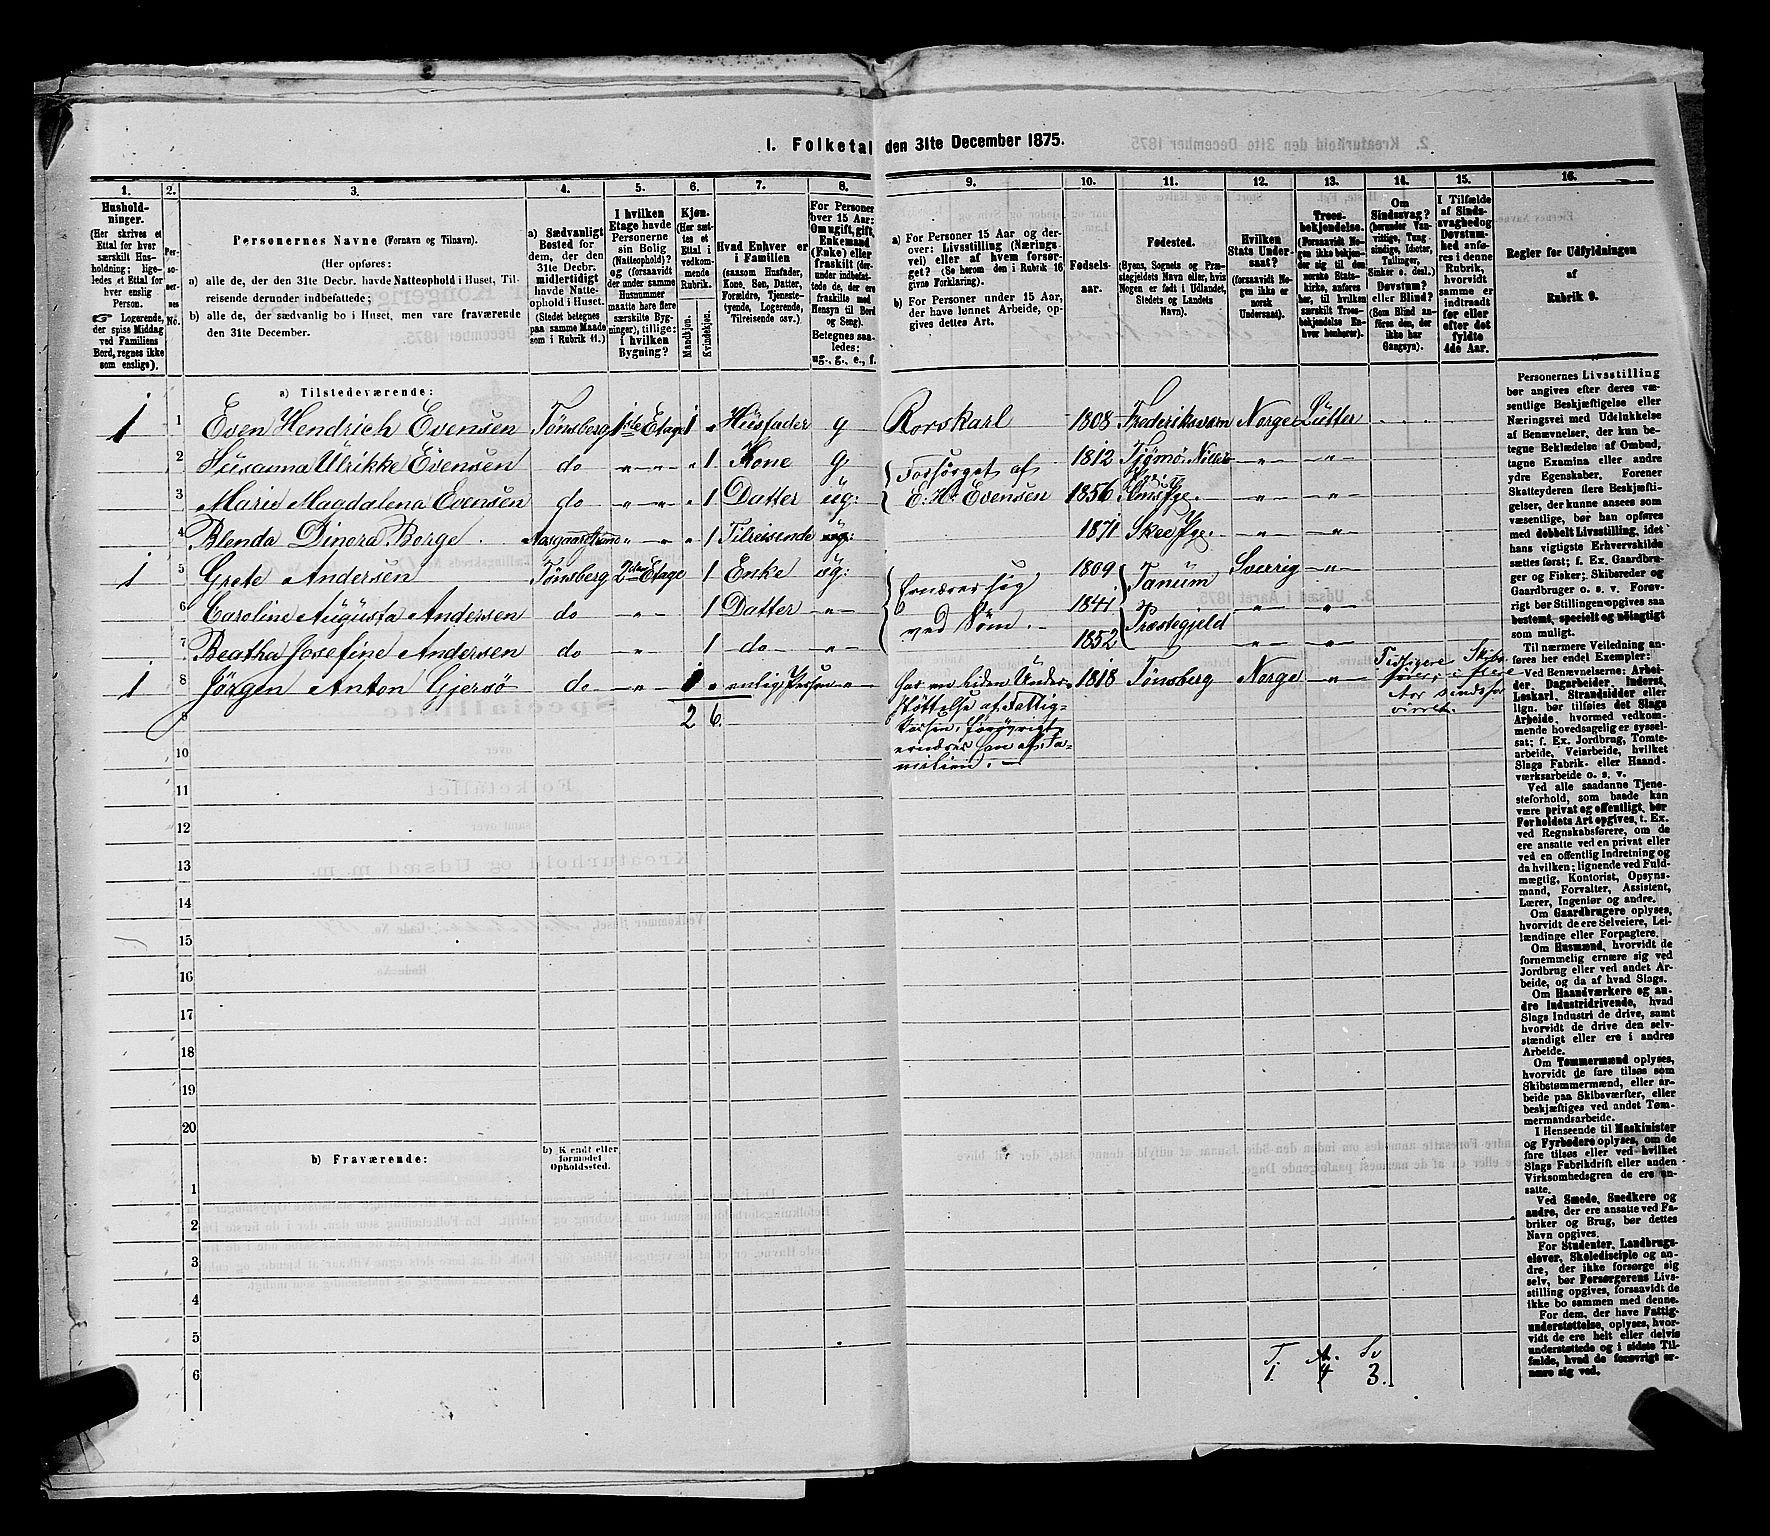 I. Folketal den 31te December 1875.
1. 2. 3. 4. 5. 6. 7. 8. 9. 10. 11. 12. 13. 14. 15. 16.
Husholdninger.
(Her skrives et Ettal for hver særskilt Husholdning; ligeledes et Ettal for hver enslig Person.
☞ Logerende, der spise Middag ved Familiens Bord, regnes ikke som enslige).
Personernes No.
Personernes Navne (Fornavn og Tilnavn).
(Her opføres:
a) alle de, der den 31te Decbr. havde Natteophold i Huset, Tilreisende derunder indbefattede;
b) alle de, der sædvanlig bo i Huset, men vare fraværende den 31te December.
a) Sædvanligt Bosted for dem, der den 31te Decbr. midlertidigt havde Natteophold i Huset.
(Stedet betegnes paa samme Maade som i Rubrik 11.)
I hvilken Etage havde Personerne sin Bolig (Natteophold)? og (forsaavidt der under samme Husnummer maatte høre flere særskilte Bygninger), tillige: i hvilken Bygning?
Kjøn.
(Her sættes et Ettal i vedkommende Rubrik.
Mandkjøn. Kvindekjøn.
Hvad Enhver er i Familien
(saasom Husfader, Kone, Søn, Datter, Forældre, Tjenestetyende, Logerende, Tilreisende osv.)
For Personer over 15 Aar: Om ugift, gift, Enkemand (Enke) eller fraskilt (derunder indbefattede de, der ere fraskilte med Hensyn til Bord og Seng).
Betegnes saaledes: ug., g., e., f.
a) For Personer 15 Aar og derover: Livsstilling (Næringsvei) eller af hvem forsørget? (Se herom den i Rubrik 16 givne Forklaring).
b) For Personer under 15 Aar, der have lønnet Arbeide, opgives dettes Art.
Fødselsaar.
Fødested.
(Byens, Sognets og Præstegjeldets Navn eller, hvis Nogen er født i Udlandet, Stedets og Landets Navn).
Hvilken Stats Undersaat?
(forsaavidt Nogen ikke er norsk Undersaat).
Troesbekjendelse.
(Forsaavidt Nogen ikke bekjender sig til den norske Statskirke, anføres her, til hvilken særskilt Troesbekjendelse Enhver henhører).
Om Sindssvag? (herunder Vanvittige, Tungsindige, Idioter, Tullinger, Sinker o. desl.) Døvstum? eller Blind? (Som Blind anføres den, der ikke har Gangsyn).
I Tilfælde af Sindssvaghed og Døvstumhed anføres i denne Rubrik, hvorvidt samme er indtraadt før eller efter det fyldte 4de Aar.
Regler for Udfyldningen af Rubrik 9.
a) Tilstedeværende:
1 1 Even Hendrich Evensen Tønsberg 1ste Etage 1 „ Husfader g Rorskarl 1808 Frederiksværn Norge Lutter
2 Susanna Ulrikke Evensen do „ „ „ 1 Kone g. Forsørget af 1812 Tjømø. „ „
3 Marie Magdalena Evensen do „ „ „ 1 Datter ug: E. H. Evensen 1856 „ „
4 Blenda Dinora Borge. „ „ 1 Tilreisende ug: 1871 „ „
1 5 Grete Andersen Tønsberg 2den Etage 1 Enke Ernærer sig 1809 Tanum Sverrig „
6 Caroline Augusta Andersen do „ 1 Datter „ ved Søm. 1841 „ „
7 Beatha Josefine Andersen do „ 1 do „ 1852 Præstegjeld „ „
1 8 Jørgen Anton Gjersø do „ 1 „ enlig Person „ har en liden Under- 1818 Tønsberg Norge „ Tidligere Skibs-
støttelse af Fattig-
kassen, forøvrigt
ernæres han af Fa-
milien.
9 2 6.
10
11
12
13
14
15
16
17
18
19
20
b) Fraværende:
b) Kjendt eller formodet Opholdssted.
1
2
3
4
5
6
T. A. Sv
1. 4 3.
Personernes Livsstilling bør angives efter deres væsentlige Beskjæftigelse eller Næringsvei med Udelukkelse af Benævnelser, der kun betegne Bekledelse af Ombud, tagne Examina eller andre ydre Egenskaber. Forener Skatteyderen flere Beskjæftigelser, der kunne ansees som væsentlige, bør han opføres med dobbelt Livsstilling, idet hans vigtigste Erhvervskilde sættes først; f. Ex. Gaardbruger og Fisker; Skibsreder og Gaardbruger o. s. v. Forøvrigt bør Stillingen opgives saa bestemt, specielt og nøiagtigt som muligt.
Til nærmere Veiledning anføres her endel Exempler:
Ved Benævnelserne: Arbeider, Dagarbeider, Inderst, Løskarl, Strandsidder eller lign. bør tilføies det Slags Arbeide, hvormed vedkommende hovedsagelig er sysselsat; f. Ex. Jordbrug, Tomtearbeide, Veiarbeide, hvilket Slags Fabrik- eller Haandværksarbeide o. s. v.
Ved alle saadanne Tjenesteforhold, som baade kan være privat og offentligt, bør Forholdets Art opgives, t. Ex. ved Regnskabsførere, om de ere ansatte ved en privat eller ved en offentlig Indretning og da hvilken; lignende ved Fuldmægtig, Kontorist, Opsynsmand, Forvalter, Assistent, Lærer, Ingeniør og andre.
Om Gaardbrugere oplyses, hvorvidt de ere Selveiere, Leilændinge eller Forpagtere.
Om Husmænd, hvorvidt de fornemmelig ernære sig ved Jordbrug eller ved andet Arbeide, og da af hvad Slags.
Om Haandværkere og andre Industridrivende, hvad Slags Industri de drive, samt hvorvidt de drive den selvstændigt eller ere i andres Arbeide.
Om Tømmermænd oplyses, hvorvidt de fare tilsøs som Skibstømmermænd, eller arbeide paa Skibsværfter, eller beskjæftiges ved andet Tømmermandsarbeide.
I Henseende til Maskinister og Fyrbødere oplyses, om de fare tilsøs eller ved hvilket Slags Fabrikdrift eller anden Virksomhedsgren de ere ansatte.
Ved Smede, Snedkere og andre, der ere ansatte ved Fabriker og Brug, bør dettes Navn opgives.
For Studenter, Landbrugselever, Skoledisciple og andre, der ikke forsørge sig selv, bør Forsørgerens Livsstilling opgives, forsaavidt de ikke bo sammen med denne.
For dem, der have Fattigunderstøttelse, oplyses, hvorvidt de ere helt eller delvis understøttede og i sidste Tilfælde, hvad de forøvrigt ernære sig ved.